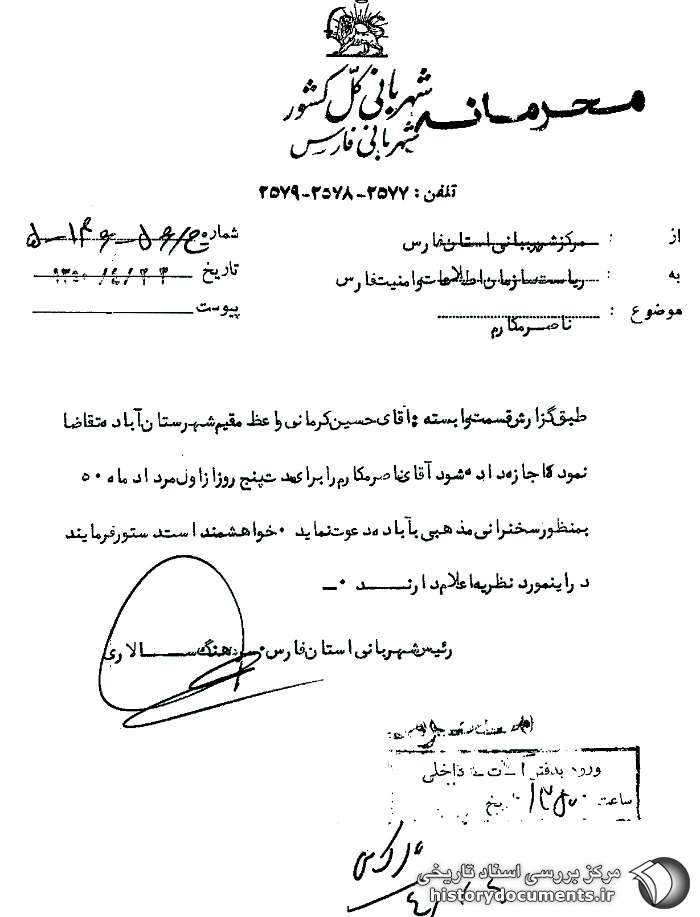 محرمانه
شهربانی کلّ کشور
شهربانی فارس
تلفن : ۲۵۷۷-۲۵۷۸-۲۵۷۹
از : مرکز شهربانی استان فارس
به : ریاست سازمان اطلاعات و امنیت فارس
موضوع : ناصر مکارم
شماره
تاریخ
پیوست
طبق گزارش قسمت وابسته : آقای حسین کرمانی واعظ مقیم شهرستان آباده تقاضا
نموده اجازه داده شود آقای ناصر مکارم را برای مدت پنج روز از اول مرداد ماه ۵۰
بمنظور سخنرانی مذهبی بآباده دعوت نماید ۰ خواهشمند است دستور فرمایند
در اینمورد نظریه اعلام دارند ۰ـ
رئیس شهربانی استان فارس ـ سرهنگ سالاری
ورود بدفتر
داخلی
ساعت
مرکز بررسی اسناد تاریخی
historydocuments.ir